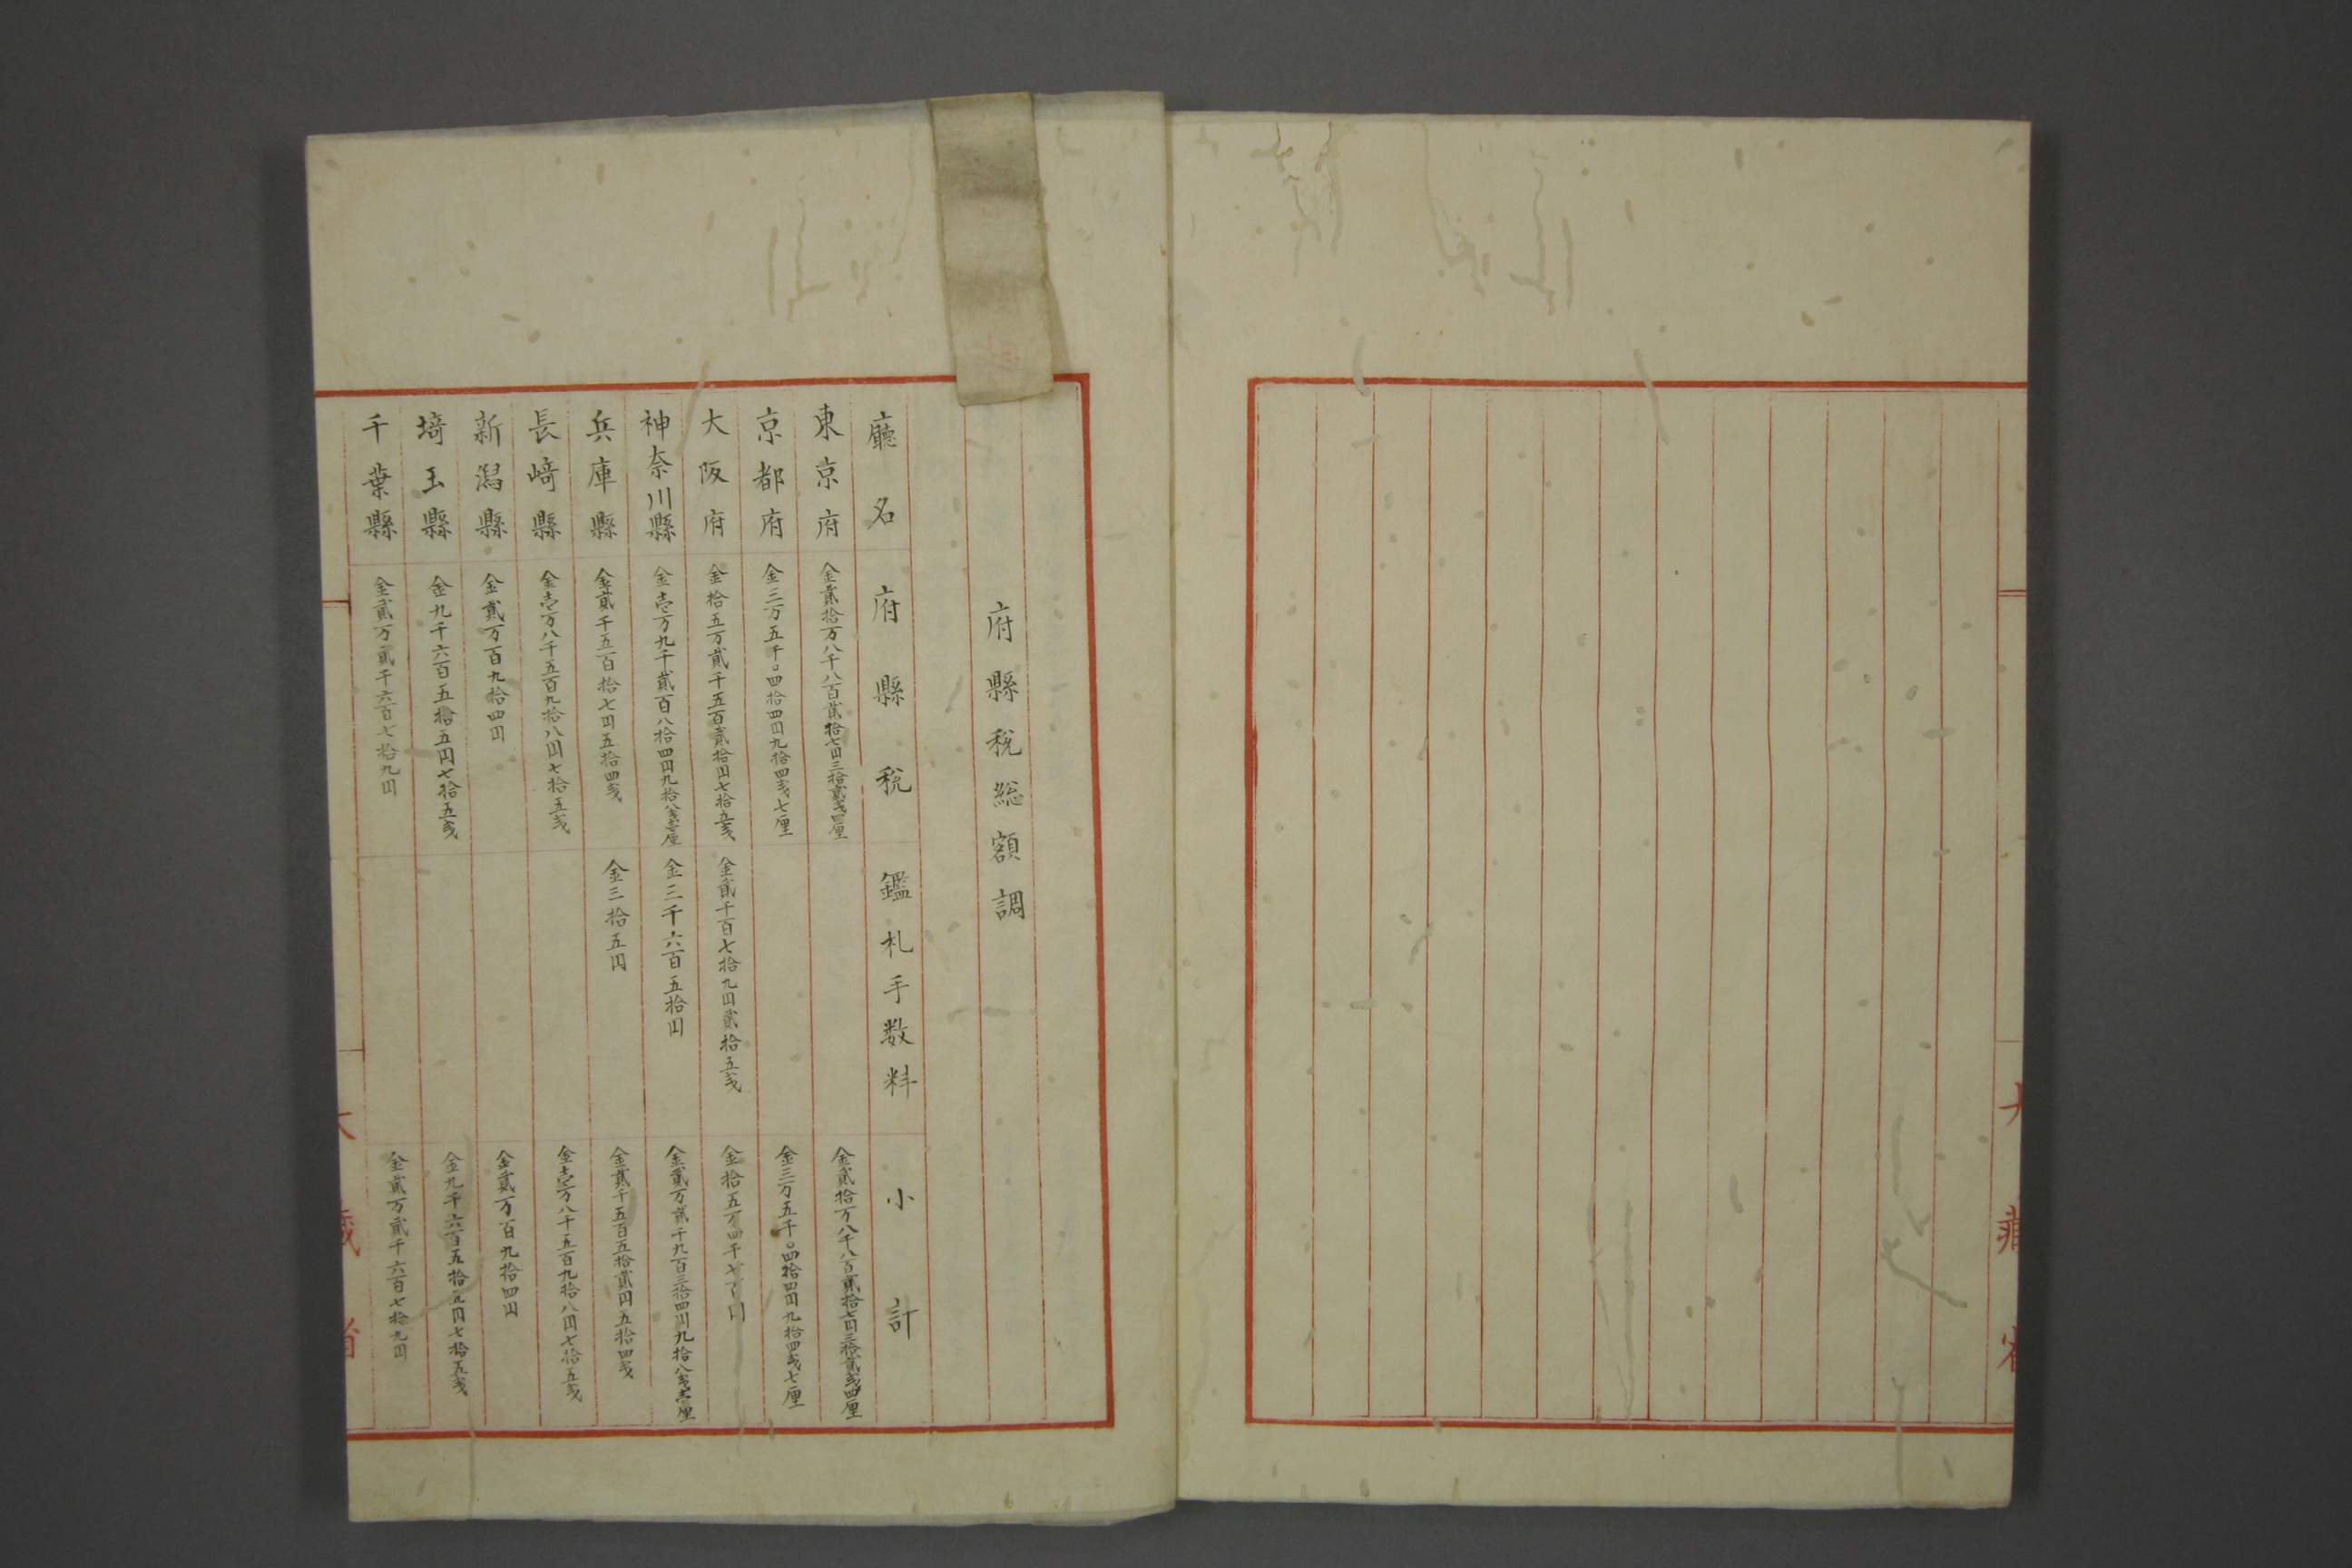 府縣税総額調
廳名 府縣税 鑑札手数料 小計
東京府 金貳拾万八千八百貳拾七円三拾貳戋四厘 金貳拾万八千八百貳拾七円三拾貳戋四厘
京都府 金三万五千〇四拾四円九拾四戋七厘 金三万五千〇四拾四円九拾四戋七厘
大阪府 金拾五万貳千五百貳拾円七拾五戋 金貳千百七拾九円貳拾五戋 金拾五万四千七百円
神奈川縣 金壱万九千貳百八拾四円九拾八戋壱厘 金三千六百五拾円 金貳万貳千九百三拾四円九拾八戋壱厘
兵庫縣 金貳千五百拾七円五拾四戋 金三拾五円 金貳千五百五拾貳円五拾四戋
長﨑縣 金壱万八千五百九拾八円七拾五戋 金壱万八千五百九拾八円七拾五戋
新潟縣 金貳万百九拾四円 金貳万百九拾四円
埼玉縣 金九千六百五拾五円七拾五戋 金九千六百五拾五円七拾五戋
千葉縣 金貳万貳千六百七拾九円 金貳万貳千六百七拾九円
大藏省